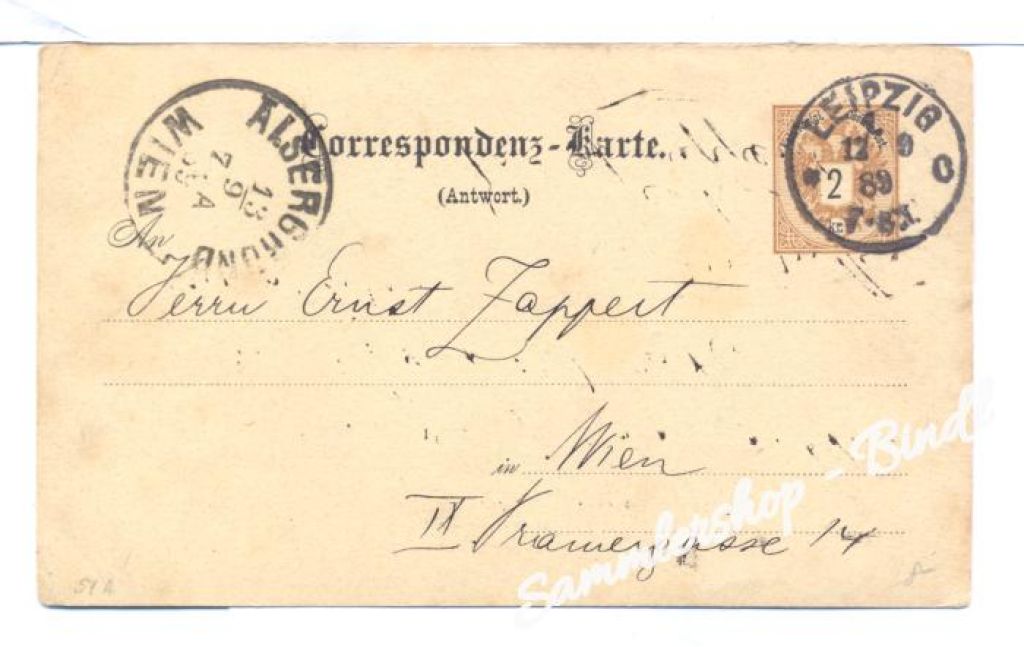 Correspondenz-Karte.
(Antwort.)
WIEN ALSERGRUND
13
9
7 A
LEIPZIG
12 9
* 2 89
C
kr.
An
Herrn Ernst Zappert
in Wien
II
14
51 A
Sammlershop - Bindl